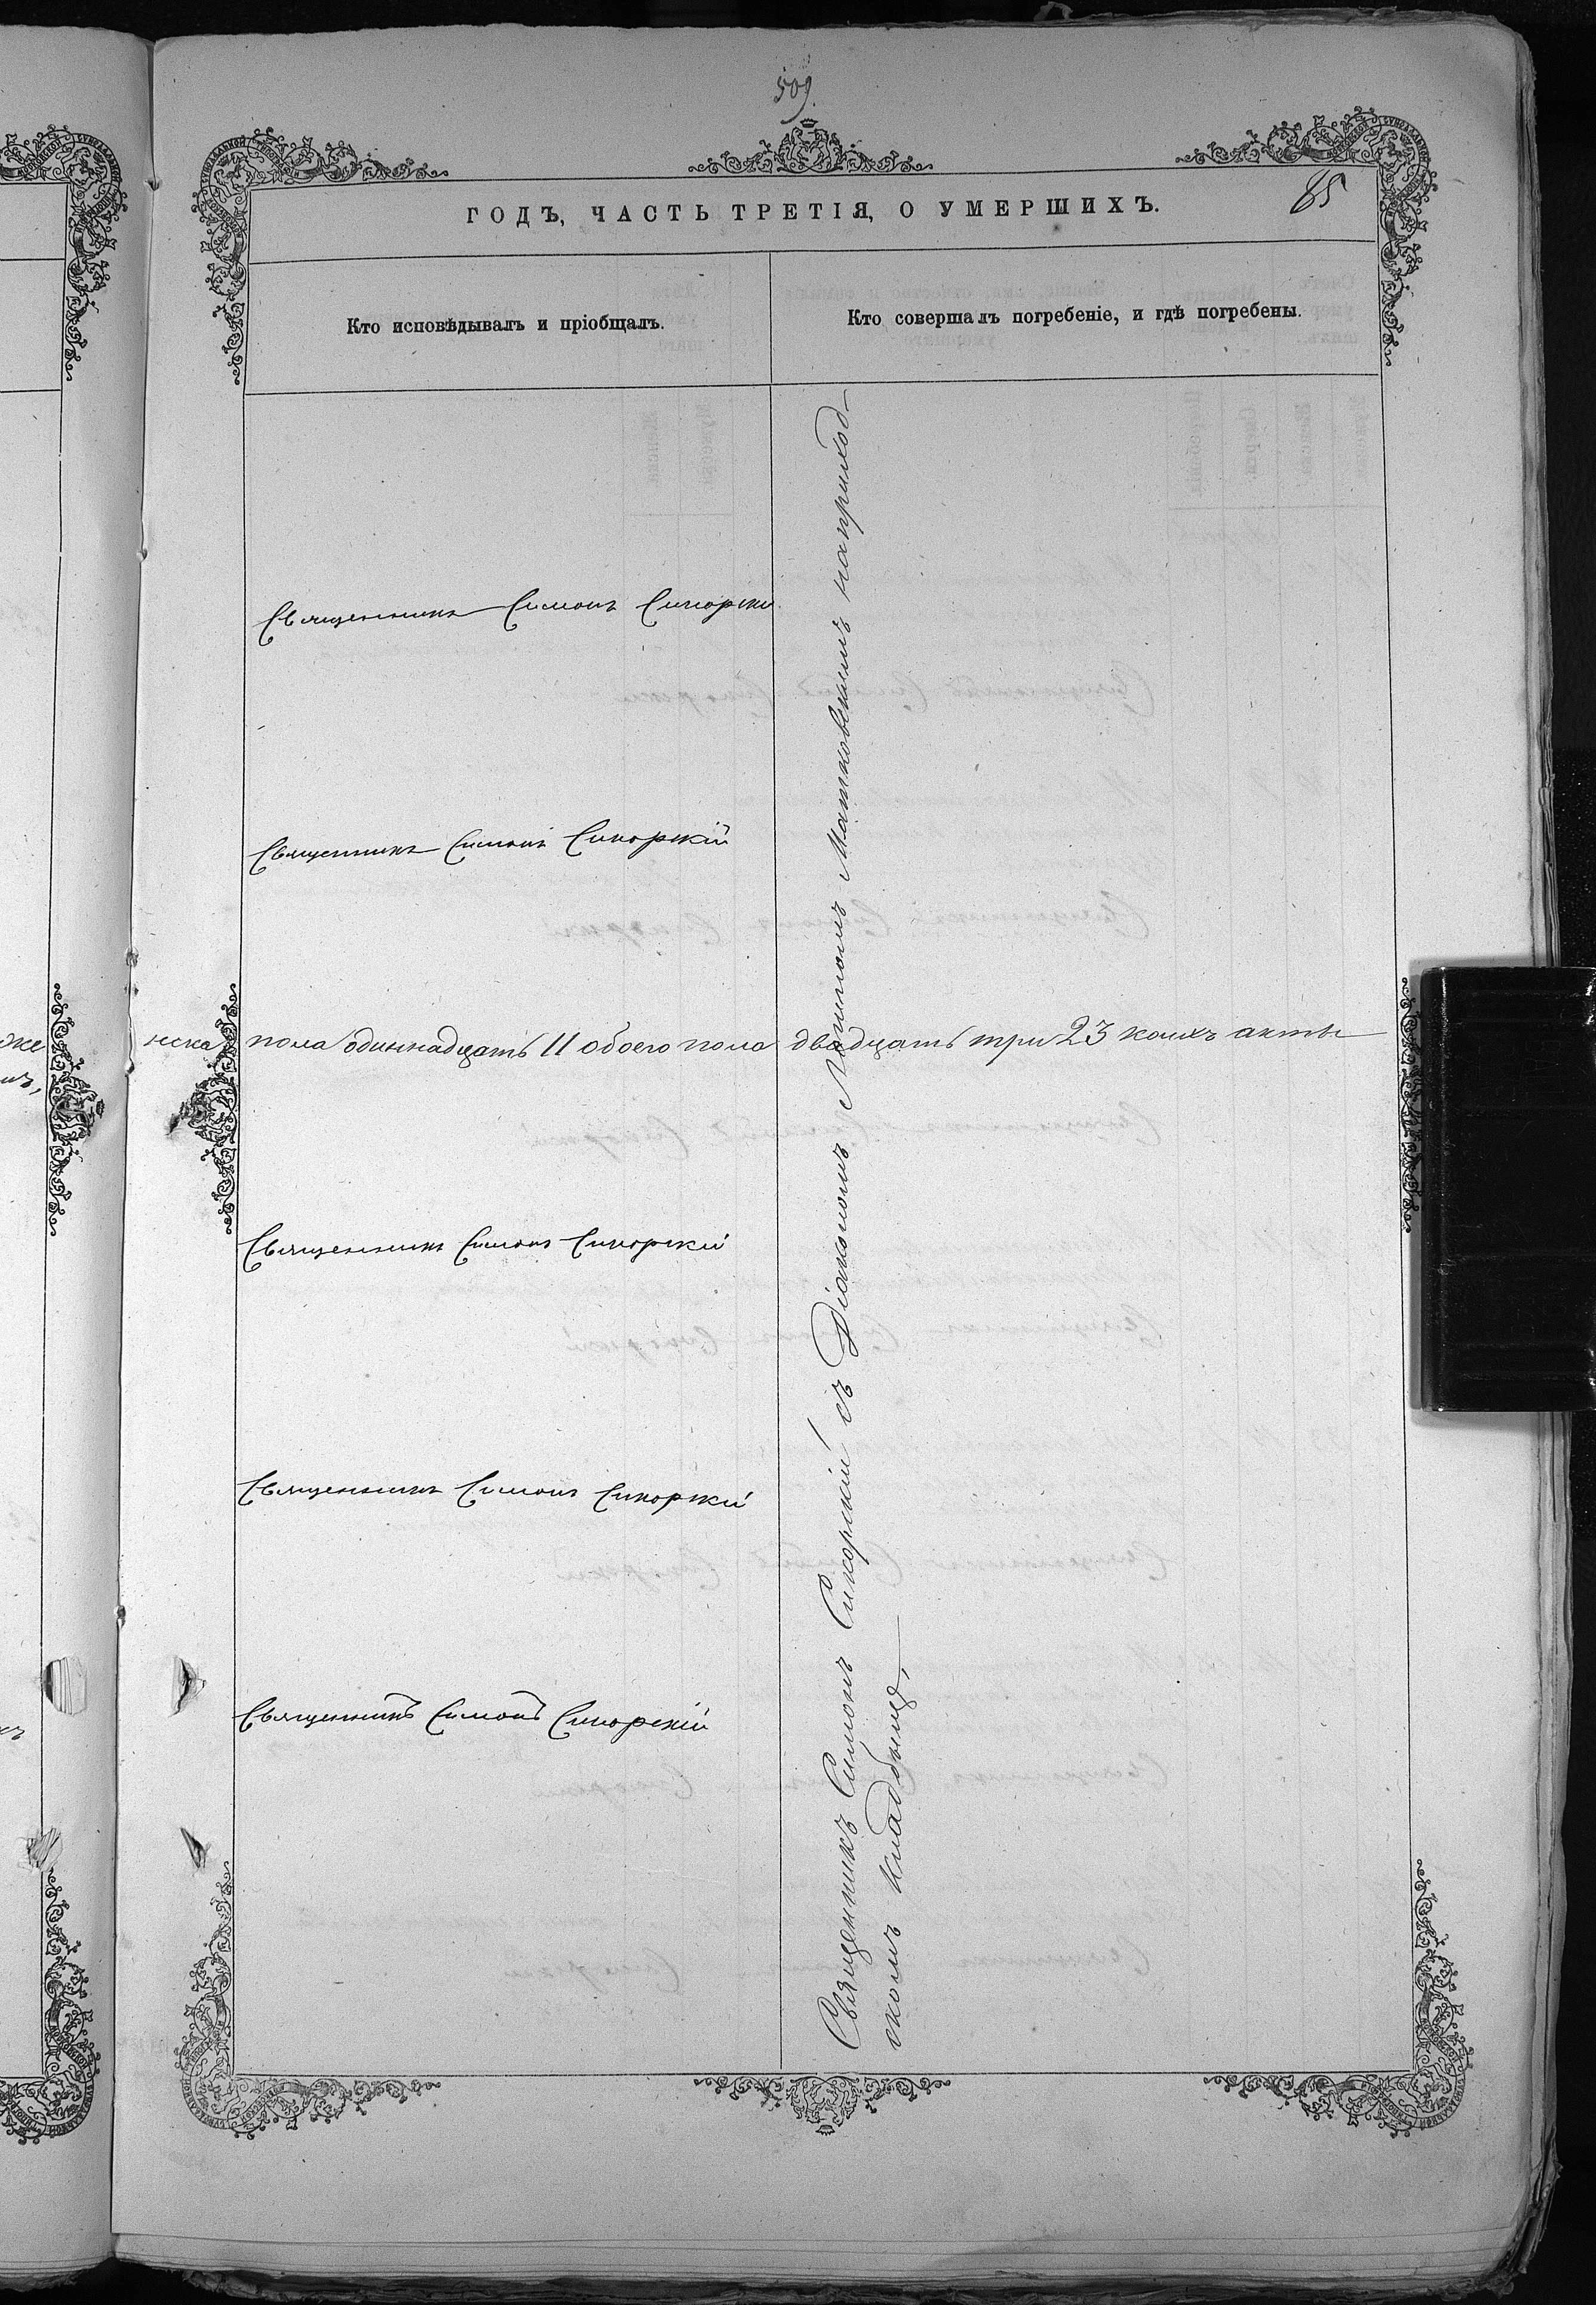 509.
85
ГОДЪ, ЧАСТЬ ТРЕТІЯ, О УМЕРШИХЪ.
Кто исповѣдывалъ и пріобщалъ.
Кто совершалъ погребеніе, и гдѣ погребены.
Священникъ Симонъ Сикорскі
Священникъ Симонъ Сикорскій
нска пола одиннадцать 11 обоего пола двадцать три 23 коихъ акты
Священникъ Симонъ Сикорскій
Священникъ Симонъ Сикорскій
Священникъ Симонъ Сикорскій
Священникъ Симонъ Сикорскій съ Діакономъ Матковскимъ на приход-
скомъ кладбищѣ,